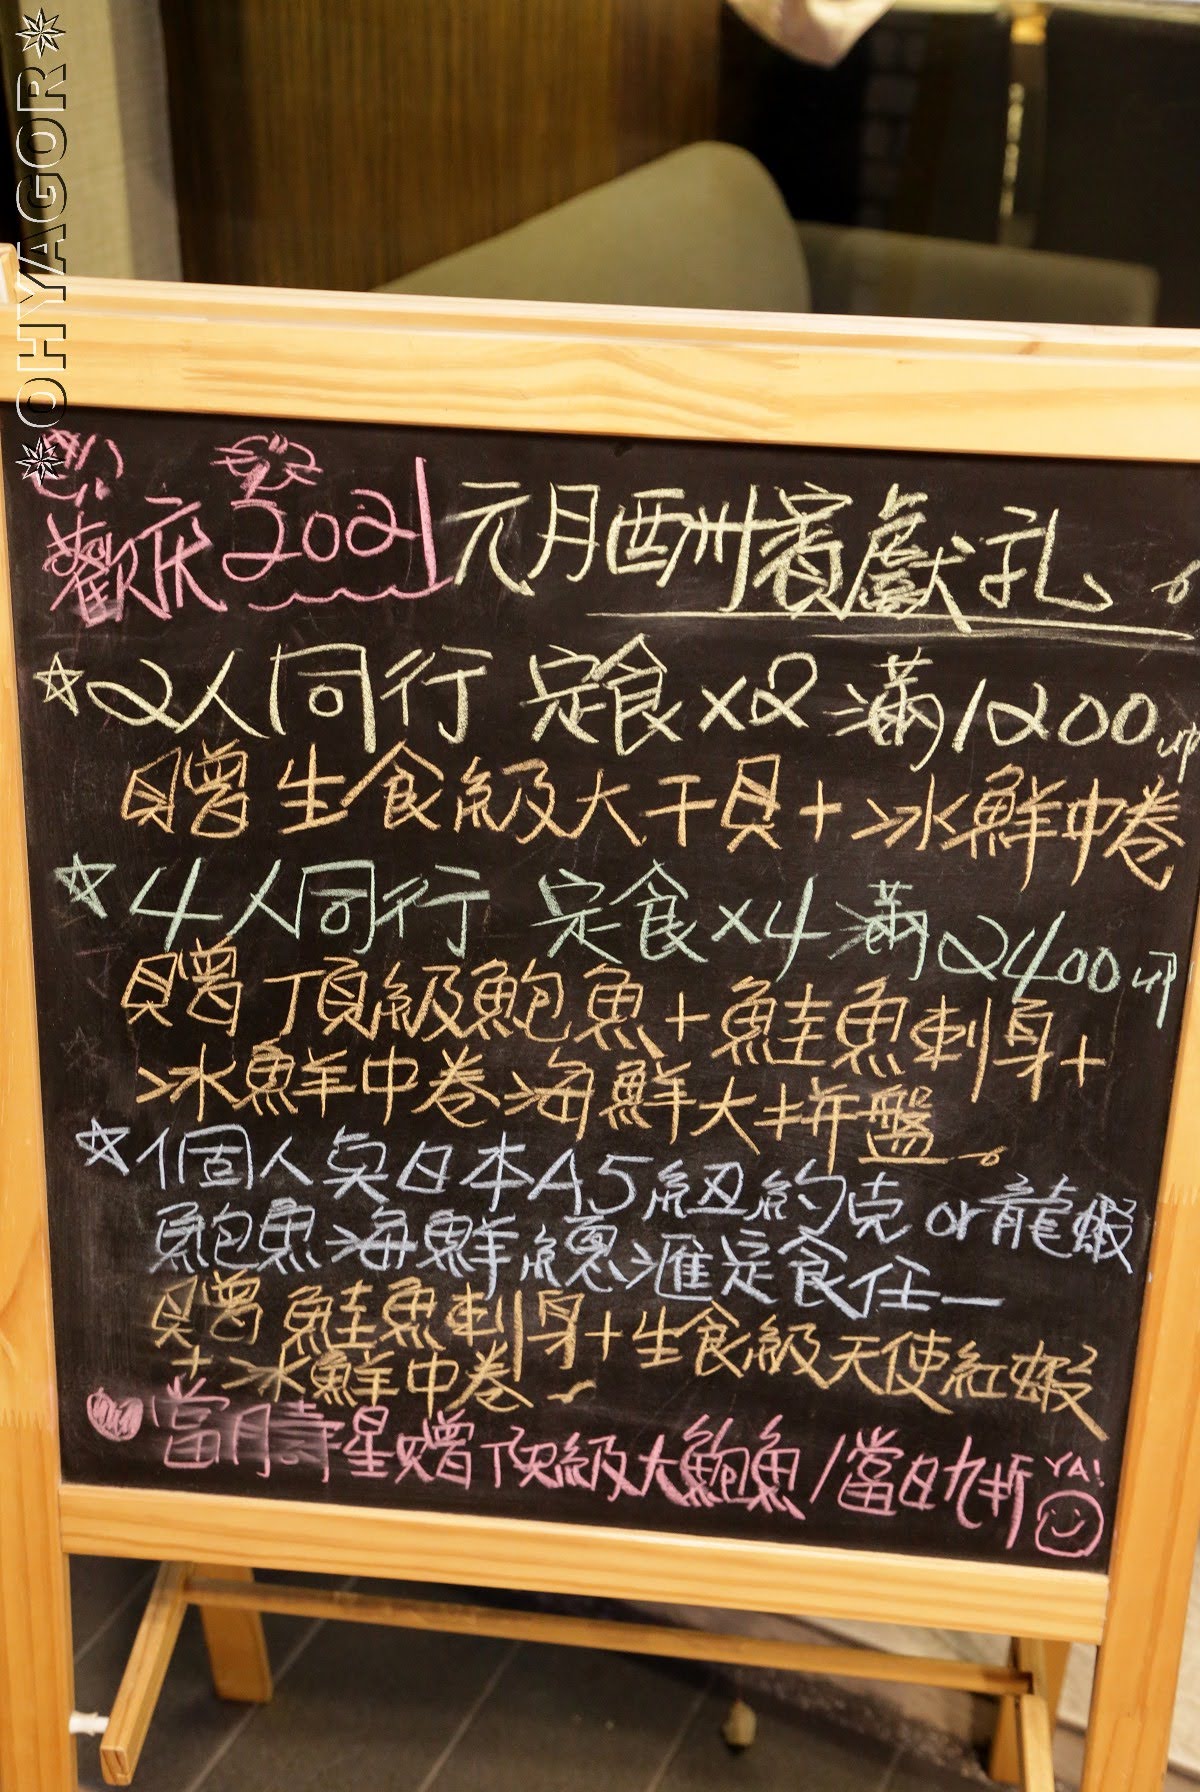 OHYAGOR
歡慶2021元月酬賓獻礼。
☆2人同行 定食x2 滿1200即
贈生食級大干貝+冰鮮中卷
☆4人同行 定食x4滿2400即
贈頂級鮑魚+鮭魚刺身+
冰鮮中卷海鮮大拼盤。
☆個人點日本A5紐約克or龍蝦
鮑魚海鮮總滙定食任一
贈鮭魚刺身+生食級天使紅蝦
+冰鮮中卷
當月壽星贈頂級大鮑魚/當日九折
YA!